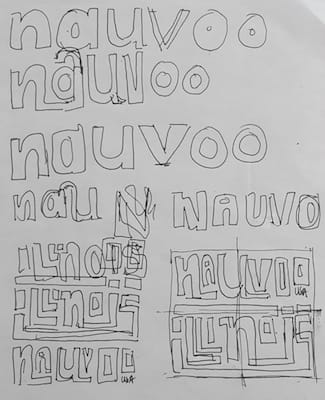 nauvoo
nauvoo
nauvoo
nau N
NAUVO
illinois
illinois
NAUVOO USA
NAUVOO USA
illinois